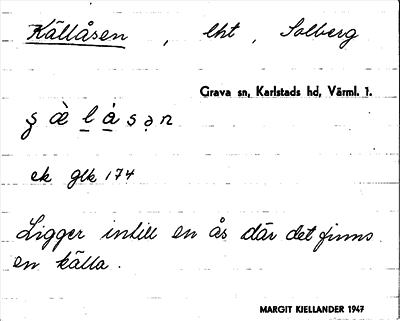 Källåsen, lht, Solberg
Grava sn, Karlstads hd, Värml. l.
ʂ æ̀ l å̀ s ə n
ek glk 174
Ligger intill en ås där det finns
en källa.
MARGIT KIELLANDER 1947